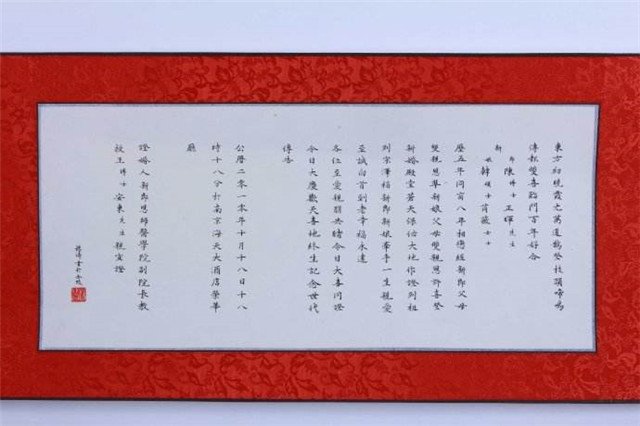 東方初曉霞萬道鵲登枝頭啼鳴
傳報雙喜臨門百年好合
新
郎陳博士正暉先生
娘韓碩士育薇女士
歷五年同窗八年相戀經新郎父母
雙親恩準新娘父母雙親恩許喜登
新婚殿堂蒼天保佑大地作證列祖
列宗澤福新郎新娘牽手一生親愛
至誠白首到老幸福永遠
各位至愛親朋共睹今日大喜同證
今日大慶歡天喜地終生記念世代
傳告
公曆二零一零年十月十八日十八
時十八分於南京海天大酒店榮華
廳
證婚人新郎恩師醫學院副院長教
授王博士安東先生親宣證